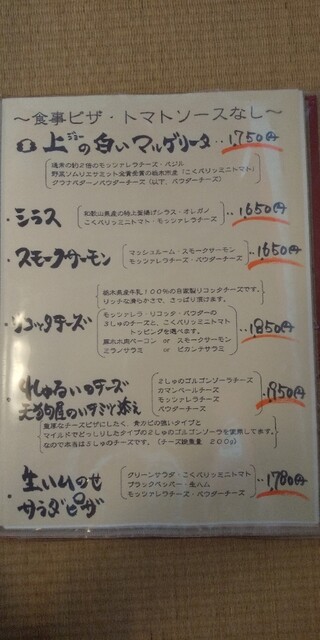 ～食事ピザ・トマトソースなし～
上ジョーの白いマルゲリータ‥1,750円
通常の約2倍のモッツァレラチーズ・バジル
野菜ソムリエサミット金賞受賞の栃木市産（こくパリッミニトマト）
グラナパダーノパウダーチーズ（以下、パウダーチーズ）
・シラス
和歌山県産の特上釜揚げシラス・オレガノ
こくパリッミニトマト・モッツァレラチーズ
‥1,650円
・スモークサーモン
マッシュルーム・スモークサーモン
モッツァレラチーズ・パウダーチーズ
‥1,650円
栃木県産牛乳１００％の自家製リコッタチーズです。
リッチな滑らかさで、さっぱり頂けます。
・リコッタチーズ
モッツァレラ・リコッタ・パウダーの
３しゅのチーズと、こくパリッミニトマト
トッピングを選べます。
厚木木肉ベーコン or スモークサーモン
ミラノサラミ or ピカンテサラミ
‥1,850円
・4しゅるいのチーズ
２しゅのゴルゴンゾーラチーズ
カマンベールチーズ
モッツァレラチーズ
パウダーチーズ
‥1,950円
のハチミツ添え
濃厚なチーズピザにしたく、青カビの強いタイプと
マイルドでどっしりしたタイプの２しゅのゴルゴンゾーラを使用してます。
なので本当は５しゅのチーズです。（チーズ総重量 ２００ｇ）
・生ハムのせ
サラダピザ
グリーンサラダ・こくパリッミニトマト
ブラックペッパー・生ハム
モッツァレラチーズ・パウダーチーズ
‥1,780円